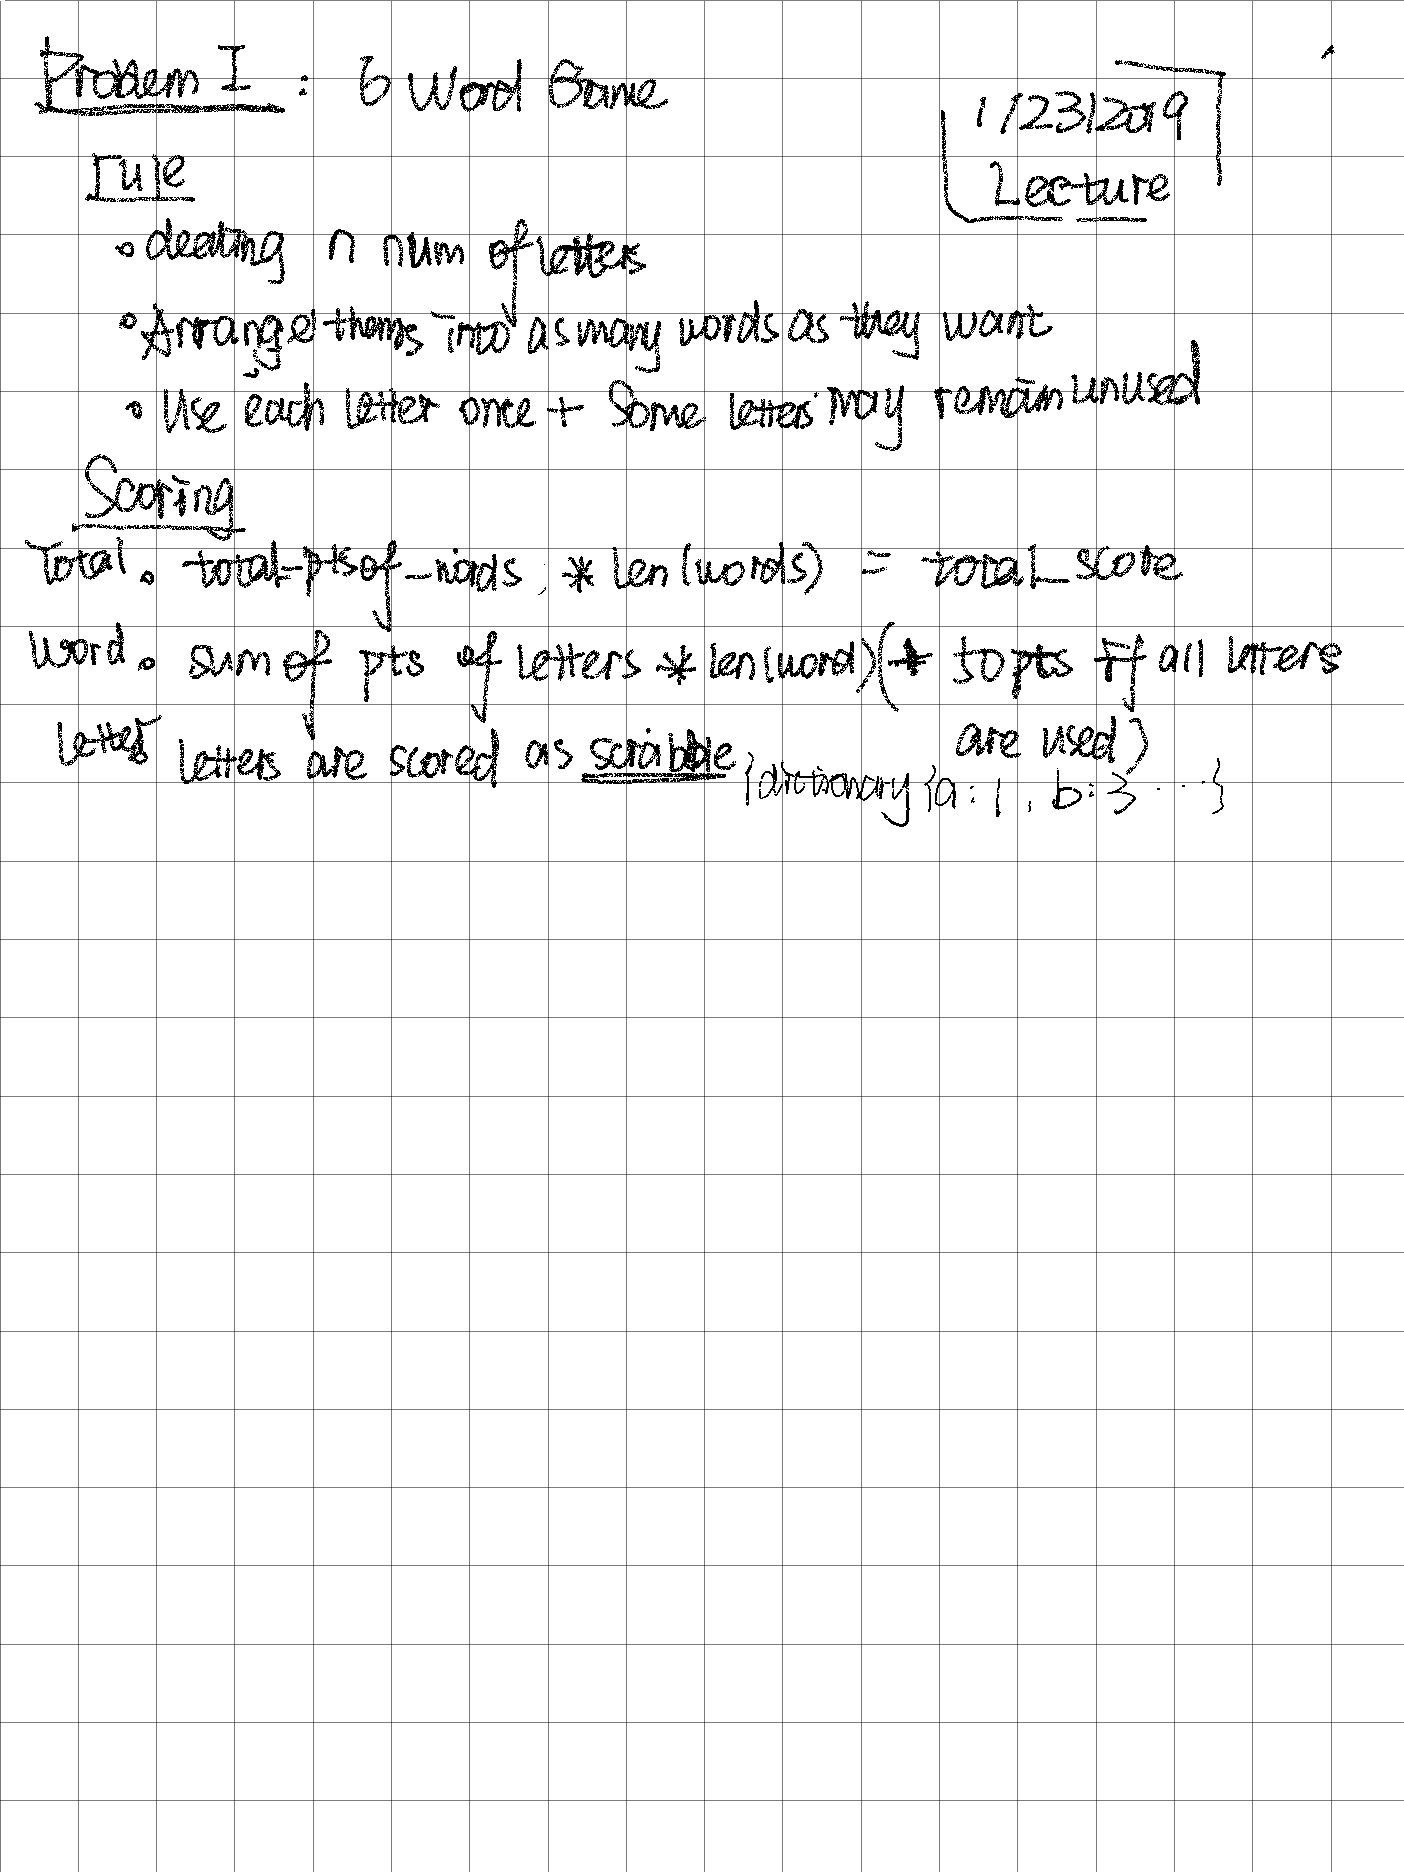 Problem I : 6 Word Game
1/23/2019
Lecture
rule
• dealing n num of letters
• Arrange thems into as many words as they want
• Use each letter once + Some letters may remain unused
Scoring
Total • total_pts of_ * len(words) = total_score
Word • sum of pts of letters * len(word) ( 50pts if all letters
are used)
letter letters are scored as scrabble {dictionary {a:1, b:3 ...}